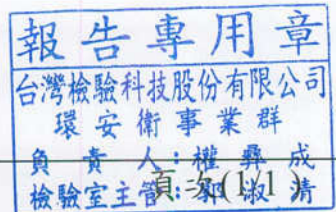 報告專用章
台灣檢驗科技股份有限公司
環安衛事業群
負責人：權彝成
檢驗室主管：郭淑清
頁次(1/1)